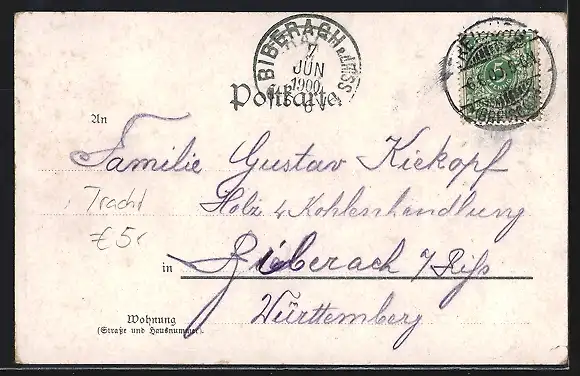 BIBERACH a.d.RISS
7
JUN
1900
Postkarte
An
Familie Gustav Kiekopf
Holz & Kohlenhandlung
in Biberach a/Riss
Württemberg
Tracht
€ 5,-
Wohnung
(Straße und Hausnummer).
5